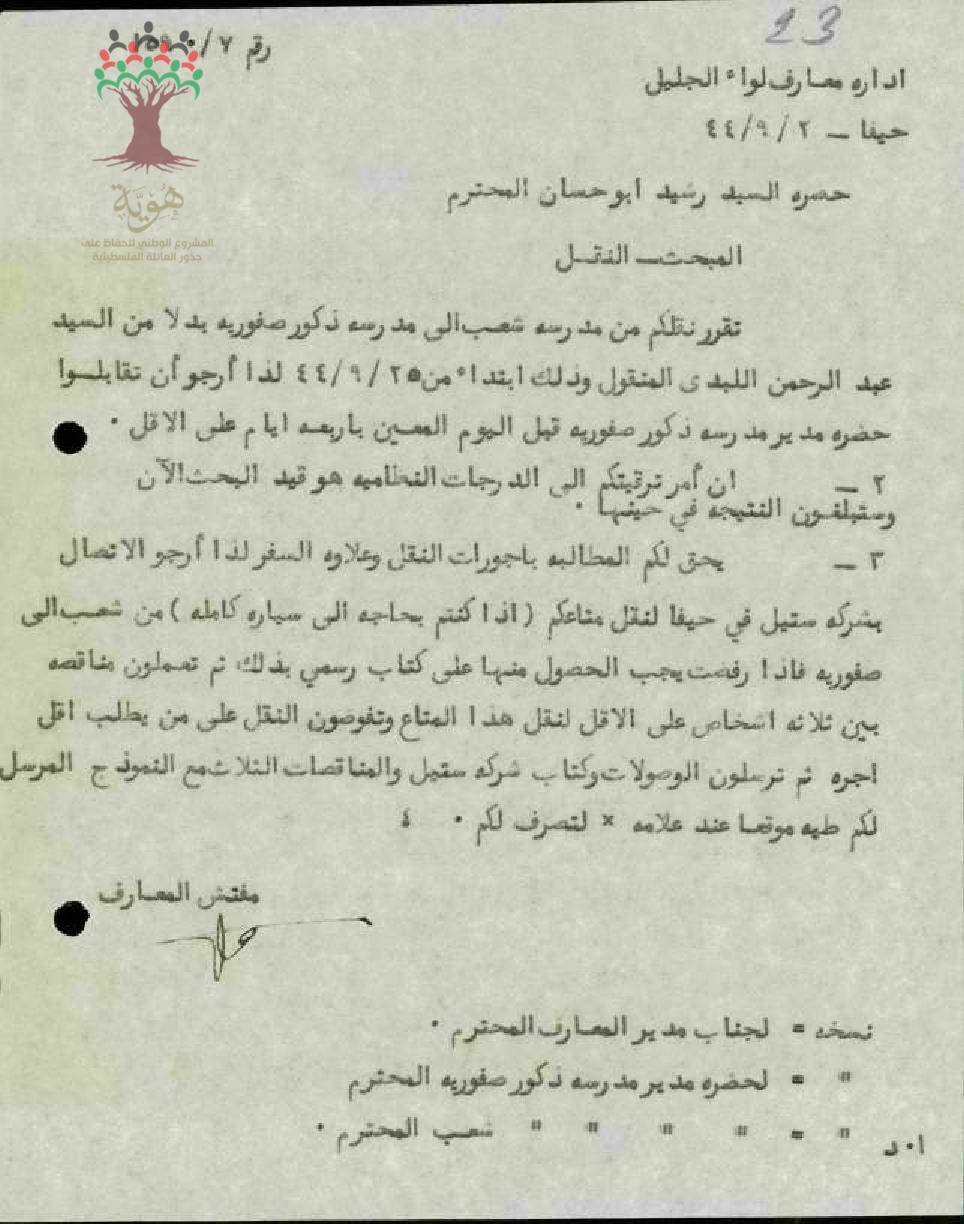 23
رقم ٧/
اداره معارف لواء الجليل
حيفا — ٢ /٤٤/٩
هُوِيَّة
المشروع الوطني للحفاظ على
جذور العائلة الفلسطينية
حضره السيد رشيد ابو حسان المحترم
المبحث — النقل
تقرر نقلكم من مدرسه شعب الى مدرسه ذكور صفوريه بدلا من السيد
عبد الرحمن اللبدى المنقول وذلك ابتداء من ٤٤/٩/٢٥ لذا أرجو أن تقابلوا
حضره مدير مدرسه ذكور صفوريه قبل اليوم المعين باربعه ايام على الاقل ٠
٢ — ان أمر ترقيتكم الى الدرجات النظاميه هو قيد البحث الآن
وستبلغون النتيجه في حينها ٠
٣ — يحق لكم المطالبه باجورات النقل وعلاوه السفر لذا أرجو الاتصال
بشركه ستيل في حيفا لنقل متاعكم ( اذا كنتم بحاجه الى سياره كامله ) من شعب الى
صفوريه فاذا رفضت يجب الحصول منها على كتاب رسمي بذلك ثم تعملون مناقصه
بين ثلاثه اشخاص على الاقل لنقل هذا المتاع وتفوضون النقل على من يطلب اقل
اجره ثم ترسلون الوصولات وكتاب شركه ستيل والمناقصات الثلاث مع النموذج المرسل
لكم طيه موقعا عند علامه × لتصرف لكم ٠ ٤
مفتش المعارف
نسخه = لجناب مدير المعارف المحترم ٠
" = لحضره مدير مدرسه ذكور صفوريه المحترم
" = " " " " شعب المحترم ٠
ا٠د